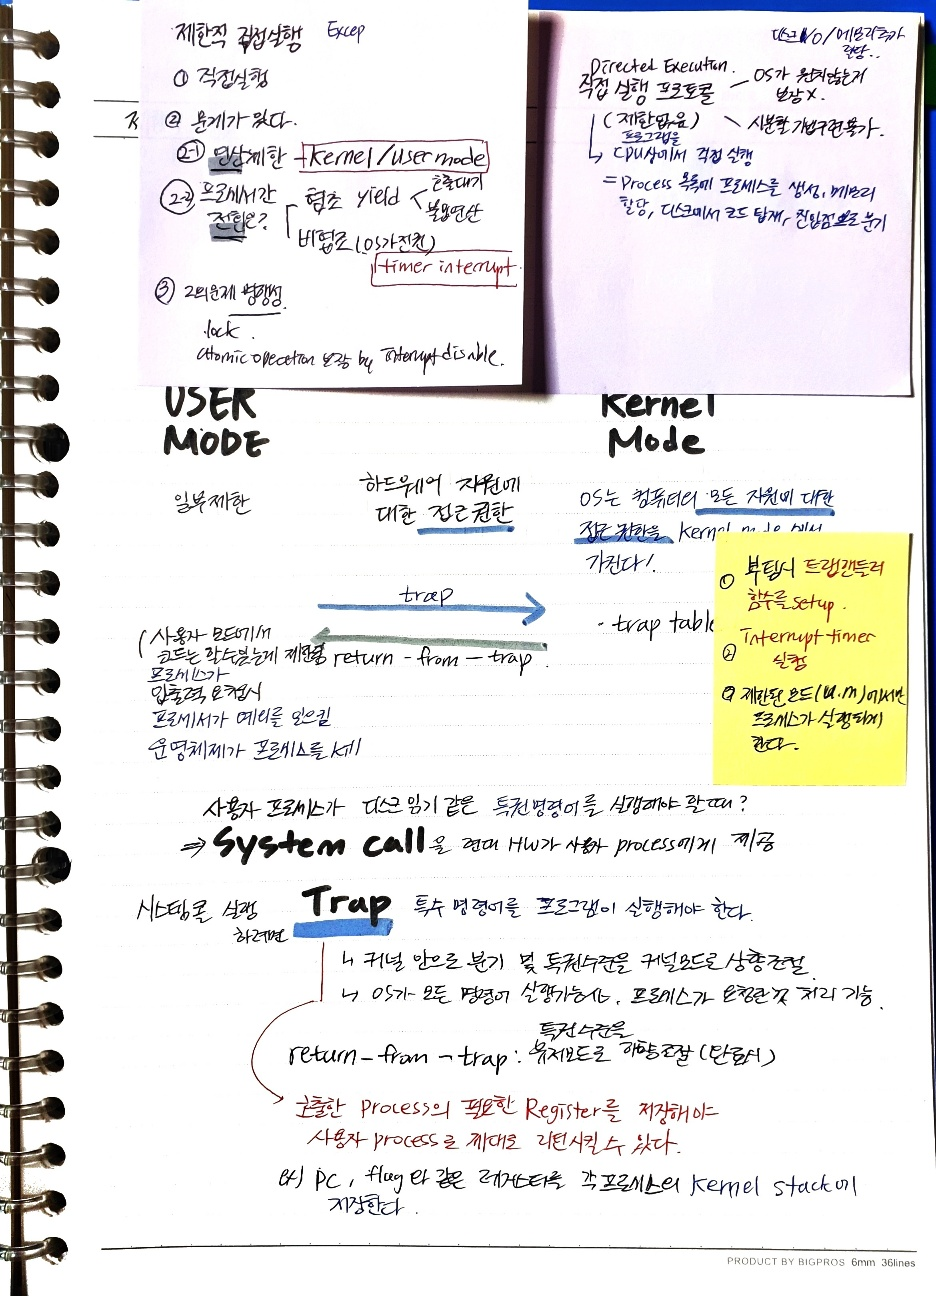 제한적 직접실행 Excep
① 직접실행
② 문제가 있다.
2-1 연산제한 → Kernel/user mode
2-2 프로세서간 협조 yield < 호출대기
전환은? 불법연산
비협조(OS가 전환)
timer interrupt
③ 그외문제 병행성.
lock.
atomic operation 보장 by Interrupt disable.
디스크 I/O/메모리추가
할당..
Directed Execution.
직접 실행 프로토콜 — OS가 원치않는거
보장X.
(제한없음) \ 시분할 기법구현불가.
프로그램을
↳ CPU상에서 직접 실행
= Process 목록에 프로세스를 생성, 메모리
할당, 디스크에서 코드 탑재, 진입점으로 분기
USER Kernel
MODE Mode
일부제한
하드웨어 자원에
대한 접근권한
OS는 컴퓨터의 모든 자원에 대한
접근 권한을 kernel mode 에서
가진다!
trap
return-from-trap.
· trap table
사용자 모드에서
코드는 할수있는게 제한됨
프로세스가
입출력 요청시
프로세서가 예외를 일으킴
운영체제가 프로세스를
① 부팅시 트랩핸들러
함수를 setup.
② Interrupt timer
실행
③ 제한된 모드(U.m)에서만
프로세스가 실행되게
한다.
사용자 프로세스가 디스크 읽기 같은 특권명령어를 실행해야 할때?
⇒ System call을 현대 HW가 사용자 process에게 제공
시스템콜 실행 Trap 특수 명령어를 프로그램이 실행해야 한다.
하려면
↳ 커널 안으로 분기 및 특권수준을 커널모드로 상향조절.
↳ OS가 모든 명령어 실행가능하니, 프로세스가 요청한 것 처리 가능.
특권수준을
return-from-trap: 유저모드로 하향조절 (완료시)
호출한 Process의 필요한 Register를 저장해야
사용자 process로 제대로 리턴시킬 수 있다.
ex) PC, flag 와 같은 레지스터를 각 프로세스의 Kernel stack에
저장한다.
PRODUCT BY BIGPROS 6mm 36lines